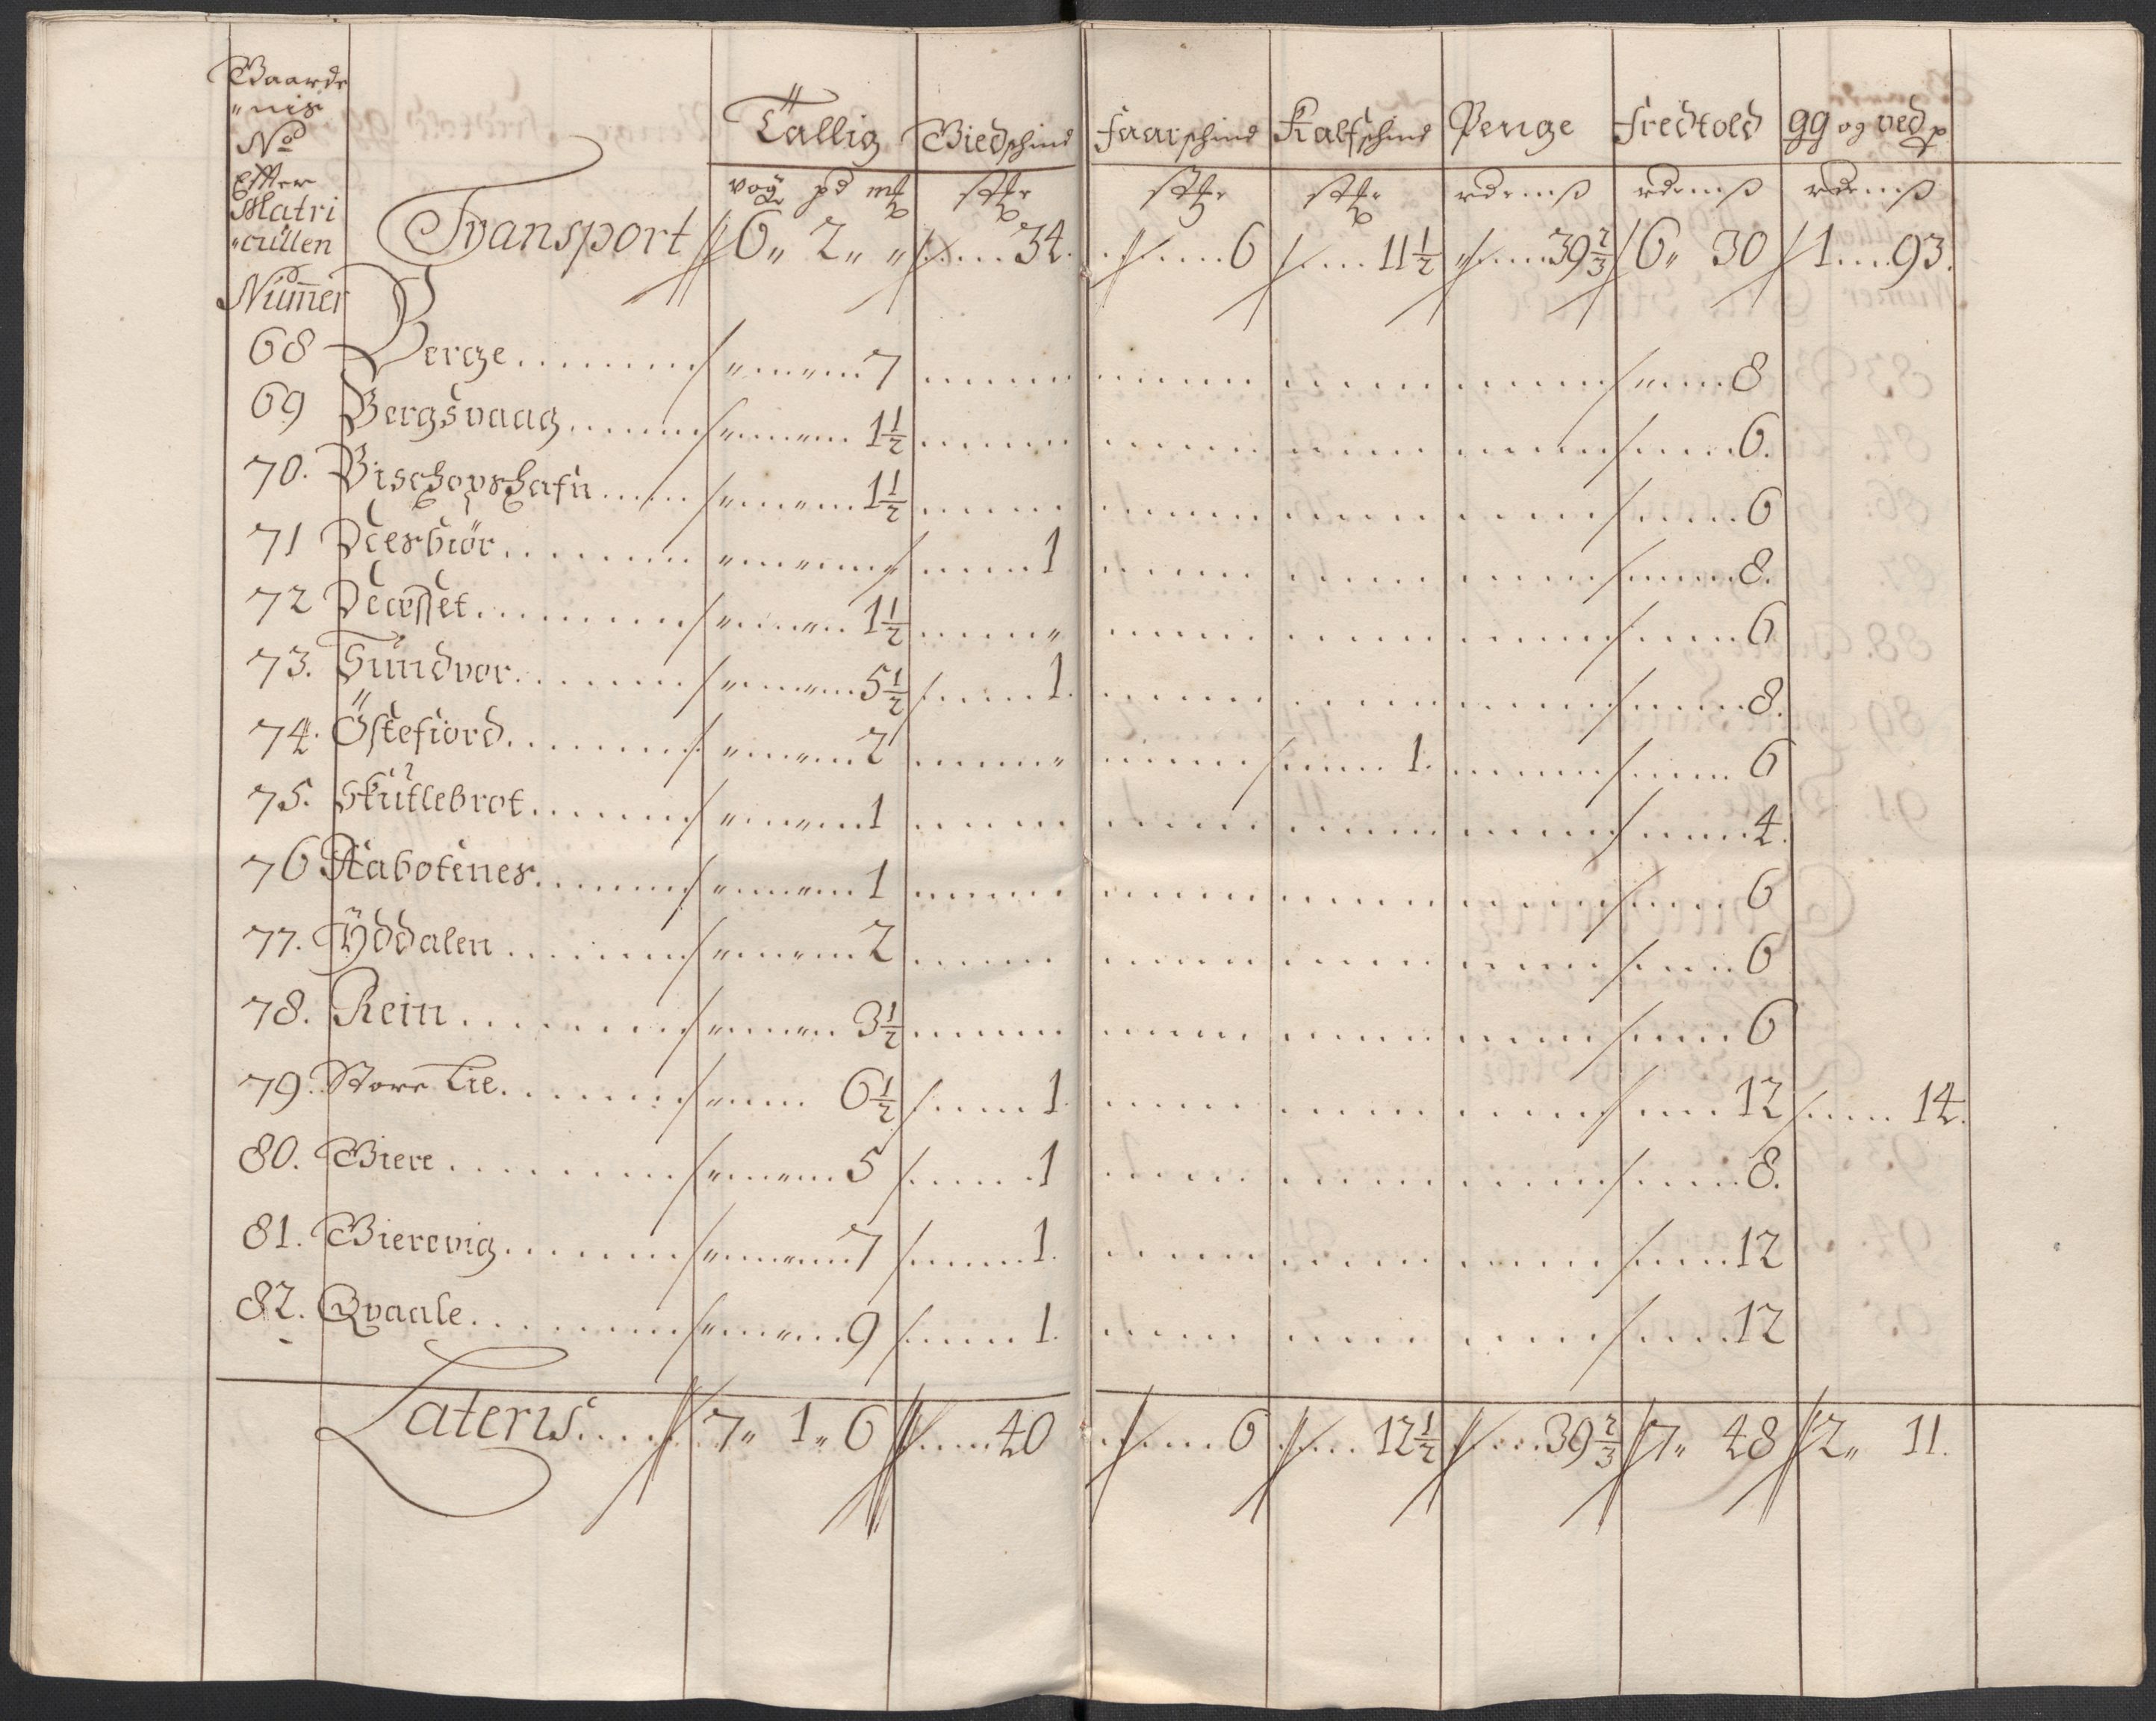 Gaarde
"nis
No
Effter
Matri
"cullen
Numer
Tallig Giedschind Faarschind Kalfschind Penge Fredtold gg og ved p
vog pd mk stkr stkr stkr rdr mß rdr mß rdr mß
Transport 6" 2" " 34. 6 11½ 39⅔ 6" 30 1 93.
68 Berge 7 8
69 Bergsvaag 1½ 6.
70. Bischopshafn 1½ 6
71 Dæsbiör 1 8.
72 1½ " 6
73. Sundvor 5½ 1. 8.
74. Östefiord 2 " 1. 6
75. Skutlebrot 1 4.
76 Rabotenes 1 6
77. Ÿddalen 2 6
78. Rein 3½ 6
79. Store Lie 6½ 1 12 14.
80. Giere 5 1 8.
81. Gierevig 7 1. 12
82. Qvaale 9 1. 12
Lateris 7" 1" 6 40 6 12½ 39⅔ 7" 48 2" 11.